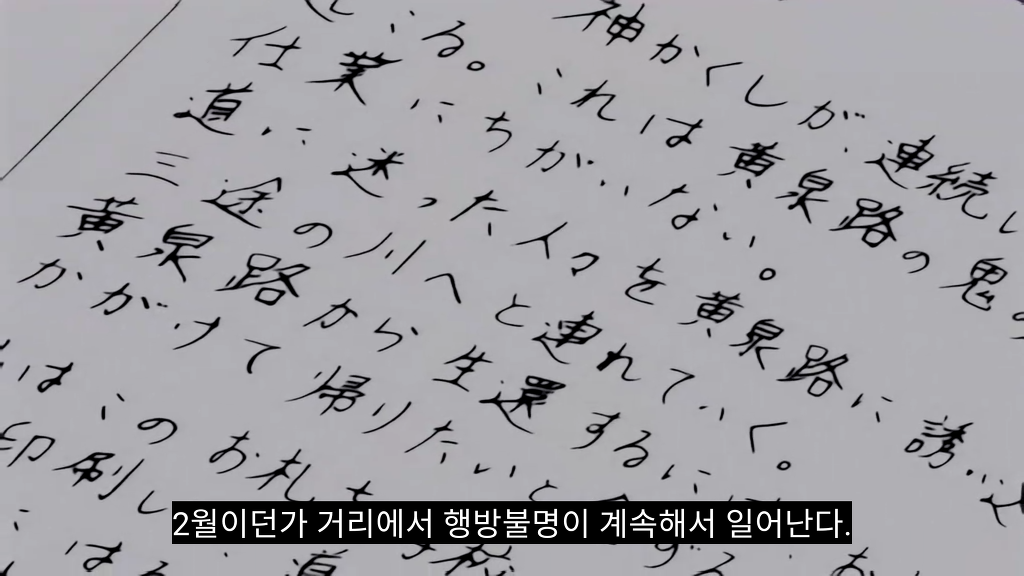 神かくしが連続し
いる。これは黄泉路の鬼の
仕業にちがいない。
道に迷った人々を黄泉路に誘い込
三途の川へと連れていく。
黄泉路から生還するに
かがけて帰りたいと
はこのお札
印刷し
2월이던가 거리에서 행방불명이 계속해서 일어난다.